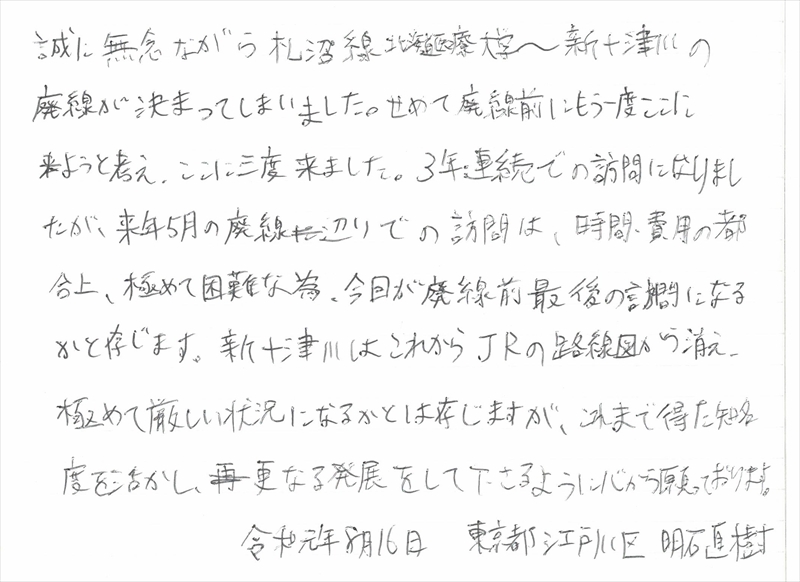 誠に無念ながら札沼線北海道医療大学～新十津川の
廃線が決まってしまいました。せめて廃線前にもう一度ここに
来ようと考え、ここに三度来ました。3年連続での訪問になりまし
たが、来年5月の廃線辺りでの訪問は、時間・費用の都
合上、極めて困難な為、今回が廃線前最後の訪問になる
かと存じます。新十津川はこれからJRの路線図から消え、
極めて厳しい状況になるかとは存じますが、これまで得た知名
度を活かし、更なる発展をして下さるように心から願っております。
令和元年8月16日 東京都江戸川区 明石直樹